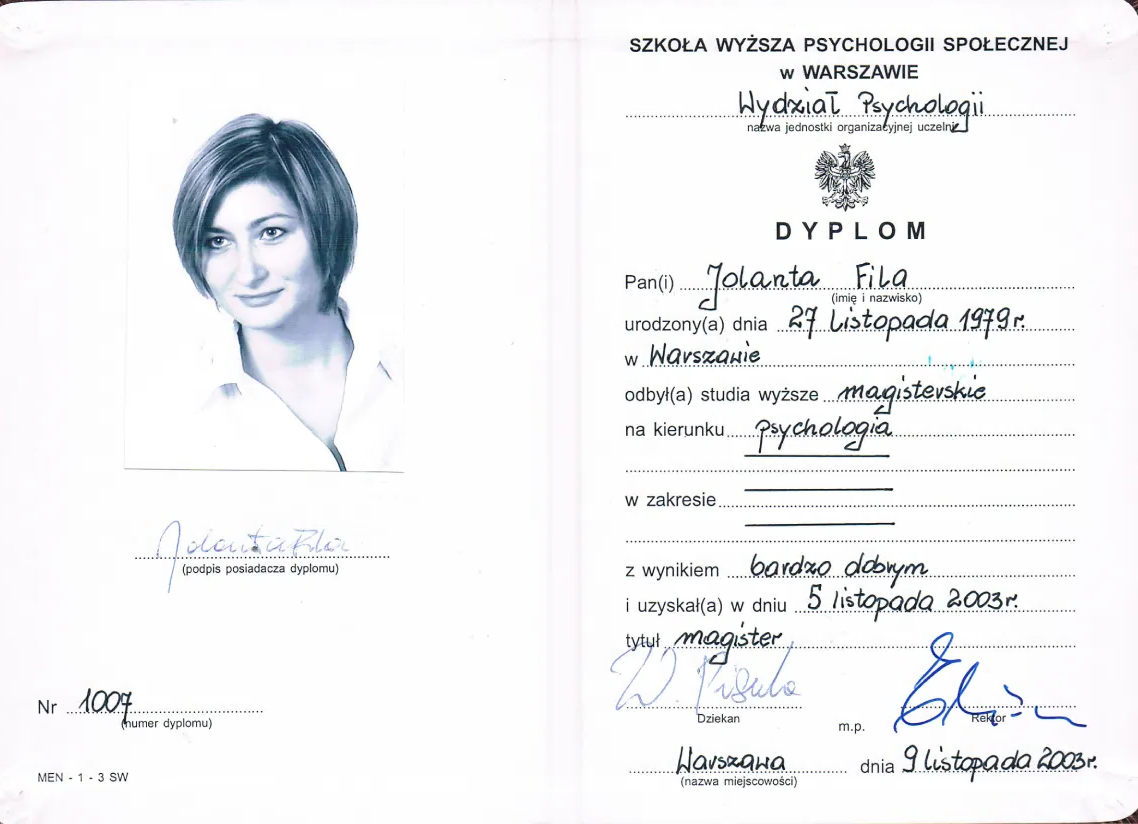 Jolanta Fila
(podpis posiadacza dyplomu)
Nr 1007
(numer dyplomu)
MEN - 1 - 3 SW
SZKOŁA WYŻSZA PSYCHOLOGII SPOŁECZNEJ
w WARSZAWIE
Wydział Psychologii
nazwa jednostki organizacyjnej uczelni
DYPLOM
Pan(i) Jolanta Fila
(imię i nazwisko)
urodzony(a) dnia 27 listopada 1979 r.
w Warszawie
odbył(a) studia wyższe magisterskie
na kierunku psychologia
w zakresie
z wynikiem bardzo dobrym
i uzyskał(a) w dniu 5 listopada 2003 r.
tytuł magister
Dziekan
m.p.
Rektor
Warszawa dnia 9 listopada 2003 r.
(nazwa miejscowości)